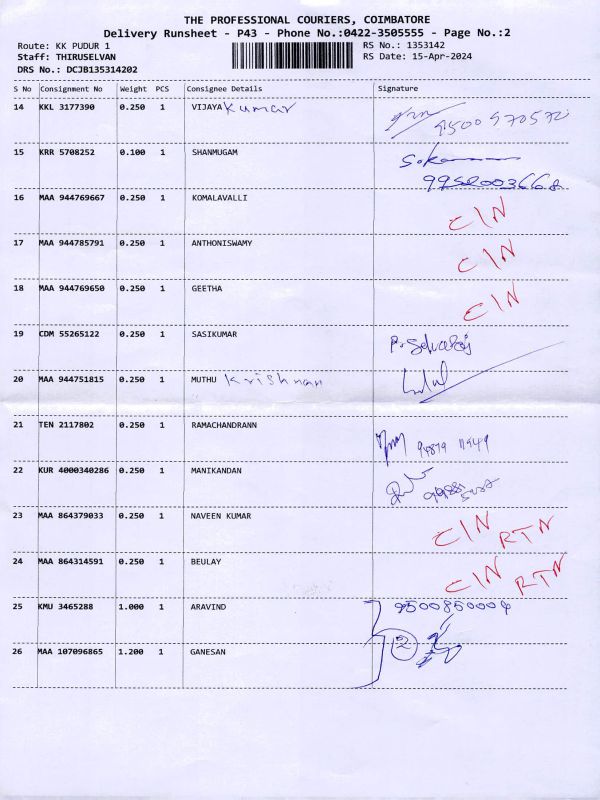 THE PROFESSIONAL COURIERS, COIMBATORE
Delivery Runsheet - P43 - Phone No.:0422-3505555 - Page No.:2
Route: KK PUDUR 1 RS No.: 1353142
Staff: THIRUSELVAN RS Date: 15-Apr-2024
DRS No.: DCJB135314202
S No Consignment No Weight PCS Consignee Details Signature
14 KKL 3177390 0.250 1 VIJAYA Kumar
15 KRR 5708252 0.100 1 SHANMUGAM
16 MAA 944769667 0.250 1 KOMALAVALLI CIN
17 MAA 944785791 0.250 1 ANTHONISWAMY CIN
18 MAA 944769650 0.250 1 GEETHA CIN
19 CDM 55265122 0.250 1 SASIKUMAR P. Selvaraj
20 MAA 944751815 0.250 1 MUTHU Krishnan
21 TEN 2117802 0.250 1 RAMACHANDRANN
22 KUR 4000340286 0.250 1 MANIKANDAN
23 MAA 864379033 0.250 1 NAVEEN KUMAR CIN RTN
24 MAA 864314591 0.250 1 BEULAY CIN RTN
25 KMU 3465288 1.000 1 ARAVIND 9500850004
26 MAA 107096865 1.200 1 GANESAN 2